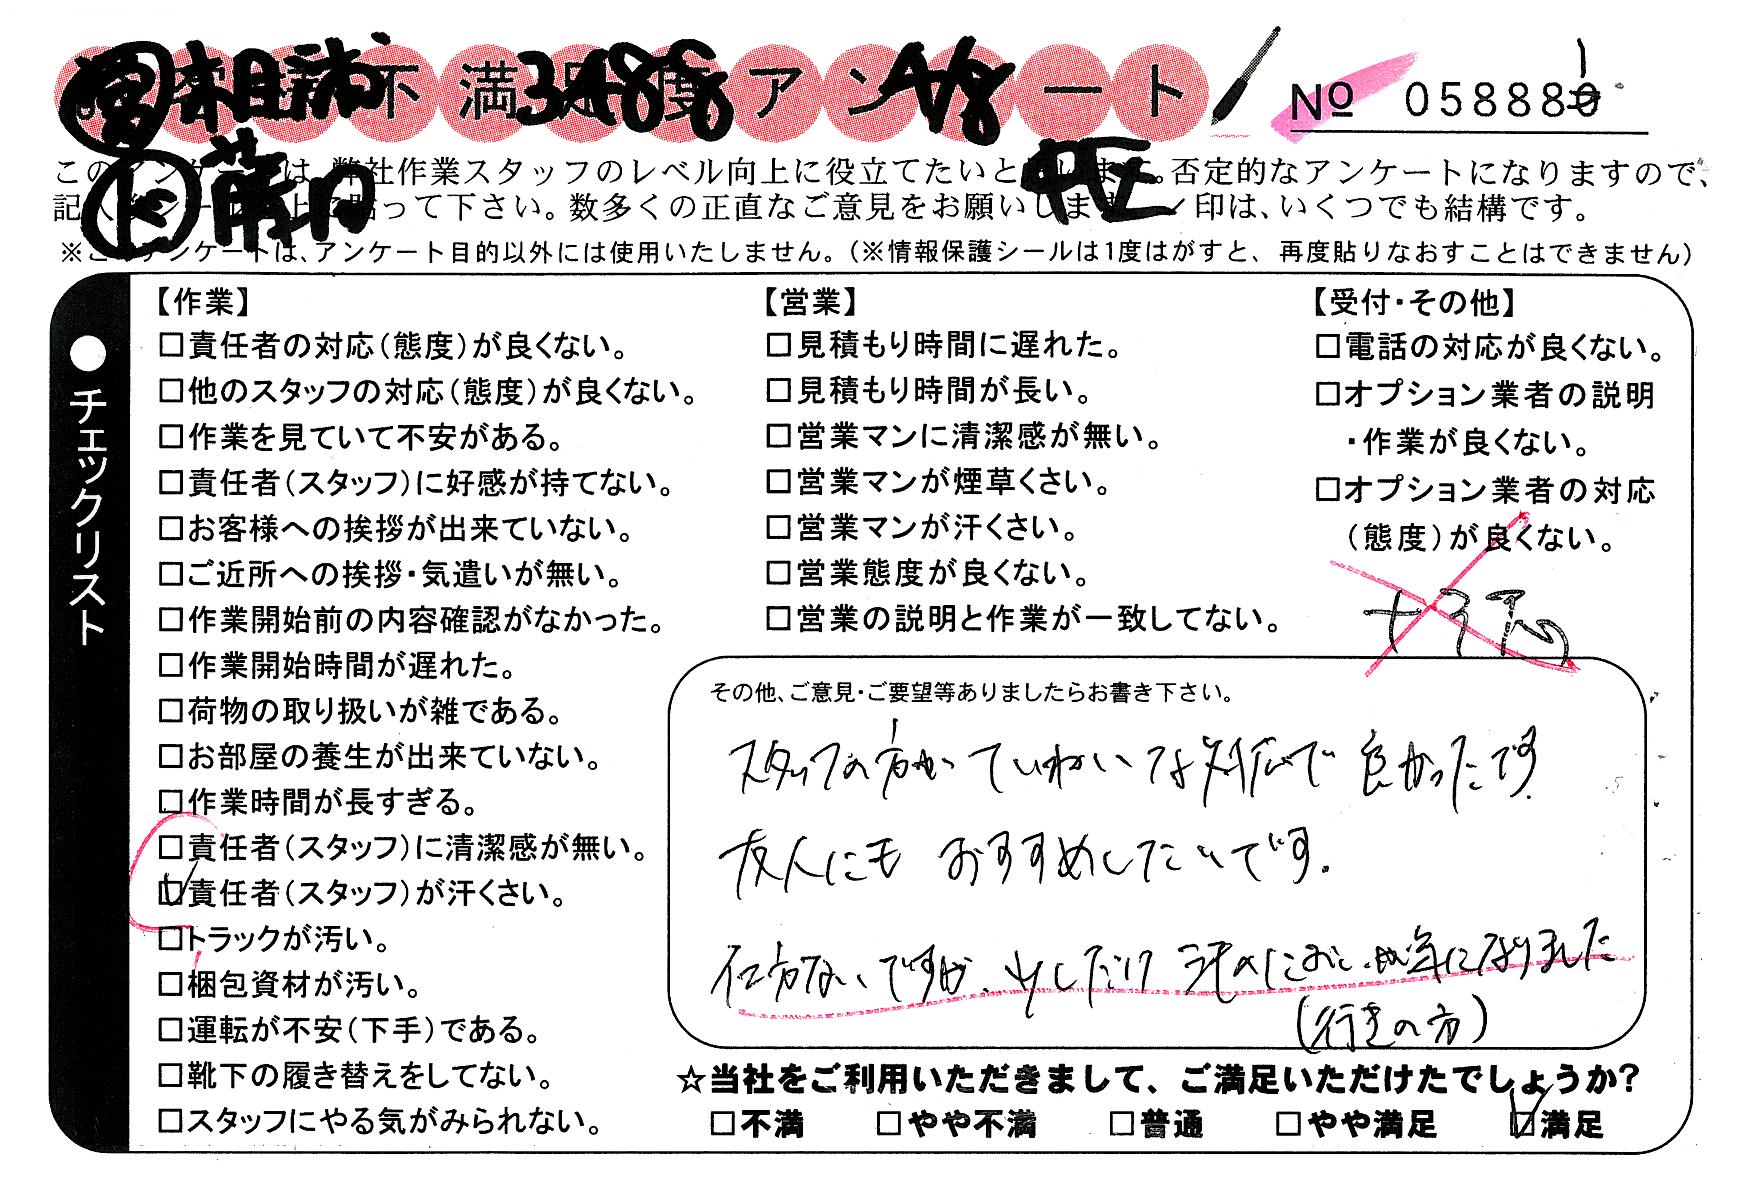 不満足度アンケート
№ 058880
1
このアンケートは、弊社作業スタッフのレベル向上に役立てたいと思います。否定的なアンケートになりますので、
記入後シールを上に貼って下さい。数多くの正直なご意見をお願いします。✓印は、いくつでも結構です。
※このアンケートは、アンケート目的以外には使用いたしません。(※情報保護シールは1度はがすと、再度貼りなおすことはできません)
●チェックリスト
【作業】
□責任者の対応(態度)が良くない。
□他のスタッフの対応(態度)が良くない。
□作業を見ていて不安がある。
□責任者(スタッフ)に好感が持てない。
□お客様への挨拶が出来ていない。
□ご近所への挨拶・気遣いが無い。
□作業開始前の内容確認がなかった。
□作業開始時間が遅れた。
□荷物の取り扱いが雑である。
□お部屋の養生が出来ていない。
□作業時間が長すぎる。
□責任者(スタッフ)に清潔感が無い。
☑責任者(スタッフ)が汗くさい。
□トラックが汚い。
□梱包資材が汚い。
□運転が不安(下手)である。
□靴下の履き替えをしてない。
□スタッフにやる気がみられない。
【営業】
□見積もり時間に遅れた。
□見積もり時間が長い。
□営業マンに清潔感が無い。
□営業マンが煙草くさい。
□営業マンが汗くさい。
□営業態度が良くない。
□営業の説明と作業が一致してない。
【受付・その他】
□電話の対応が良くない。
□オプション業者の説明
・作業が良くない。
□オプション業者の対応
(態度)が良くない。
その他、ご意見・ご要望等ありましたらお書き下さい。
スタッフの方がていねいな対応で良かったです.
友人にもおすすめしたいです.
仕方ないですが、少しだけ汗のにおいが気になりました
(行きの方)
☆当社をご利用いただきまして、ご満足いただけたでしょうか?
□不満 □やや不満 □普通 □やや満足 ☑満足